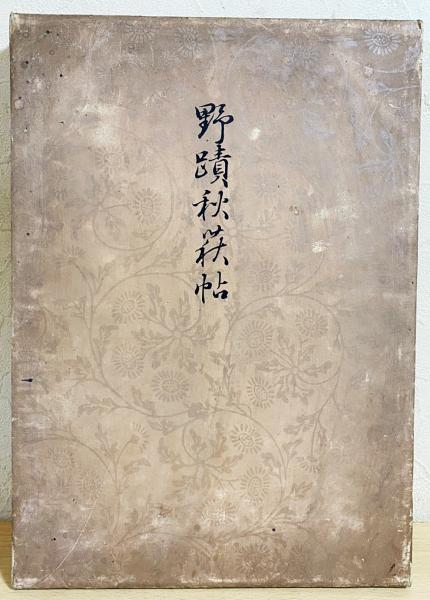 野蹟秋萩帖